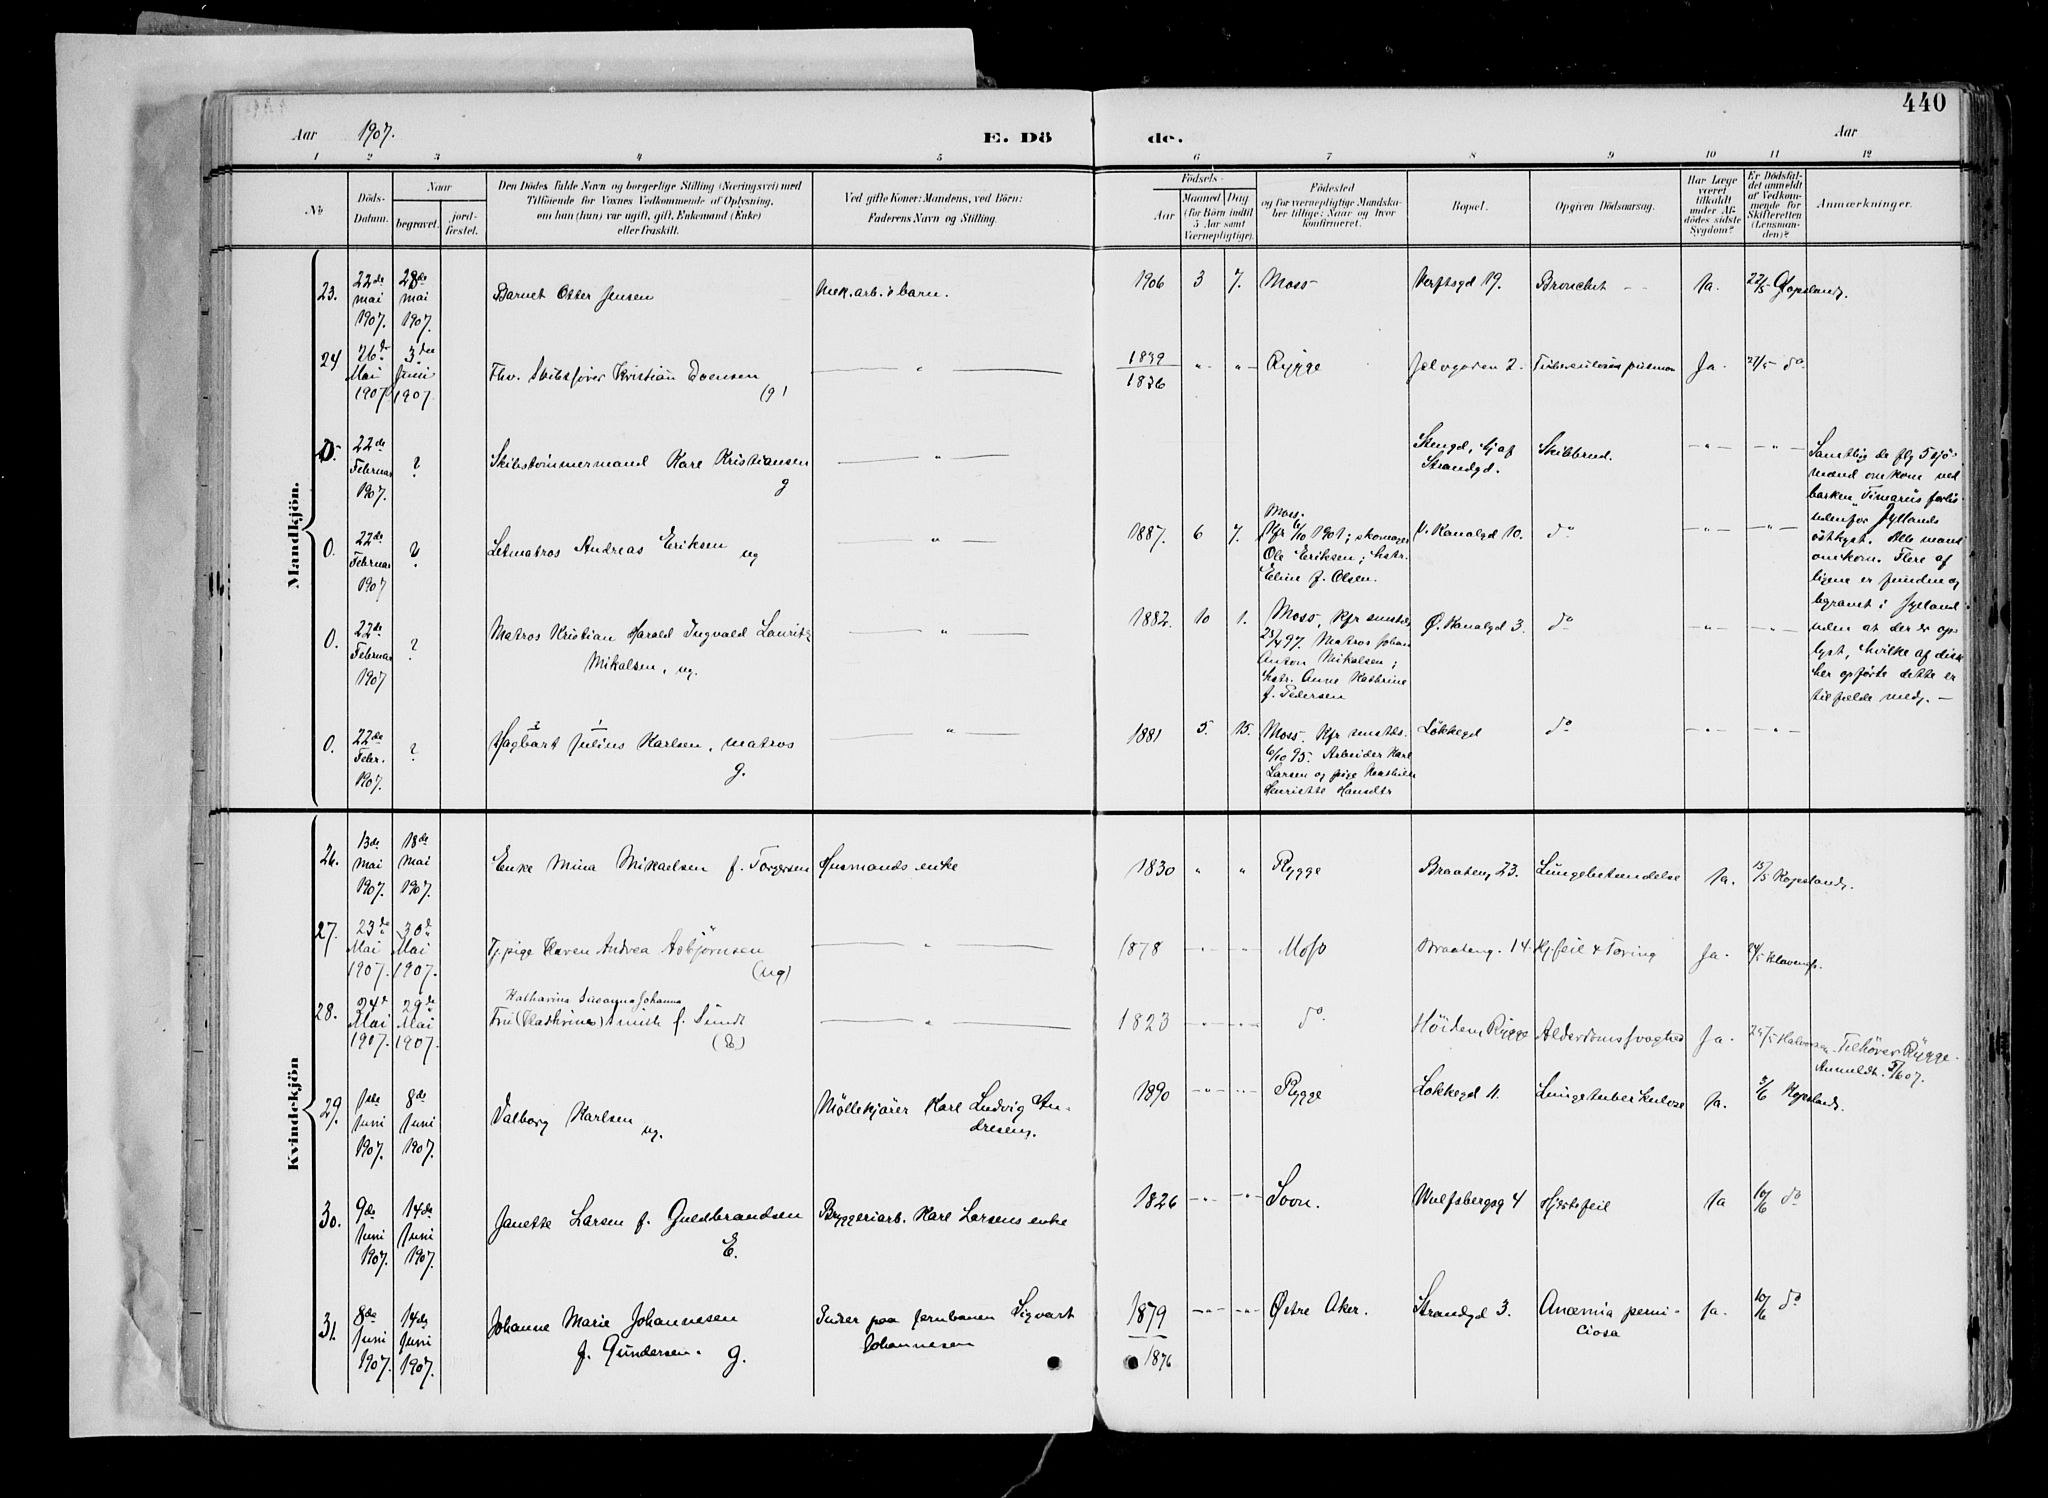 440
Aar 1907. E. Dö de. Aar
1 2 3 4 5 6 7 8 9 10 11 12
No
Döds-Datum.
Naar
begravet.
jord-fæstet.
Den Dödes fulde Navn og borgerlige Stilling (Næringsvei) med
Tilföiende for Voxnes Vedkommende af Oplysning,
om han (hun) var ugift, gift, Enkemand (Enke)
eller fraskilt.
Ved gifte Koner: Mandens, ved Börn:
Faderens Navn og Stilling.
Födsels-
Aar
Maaned Dag
(for Börn indtil
5 Aar samt
Værnepligtige).
Födested
og for værnepligtige Mandska-
ber tillige: Naar og hvor
konfirmeret.
Bopæl.
Opgiven Dödsaarsag.
Har Læge
været
tilkaldt
under Af-
dödes sidste
Sygdom?
Er Dödsfal-
det anmeldt
af Vedkom-
mende for
Skifteretten
(Lensman-
den)?
Anmærkninger.
Mandkjön.
23. 22de mai 1907. 28de mai 1907. Barnet Otter Jensen Mek. arb.s barn. 1906 3 7. Moss Verftsgd 19. Bronchit Ja. 22/5 Opslands.
24 26d Mai 1907 3die Juni 1907. Fhv. Skibsfører Kristian Doensen (g) " 1839 1836 " " Rygge Jeløgaden 2. Tuberculosis pulmon Ja. 27/5 do.
0. 22de Februar 1907. ? Skibstømmermand Karl Kristiansen g " Skougd, hj af Strandgd. Skibbrud. " "
Samtlig de flg 5 sjö-
mænd omkom ved
barken "Timarus" forlis
udenfor Jyllands
østkyst. Alle mand
omkom. Flere af
ligene er fundne og
begravet i Jylland
uden at der er op-
lyst, hvilke af disse
her opførte dette er
tilfælde med. —
0. 22de Februar 1907 ? Letmatros Andreas Eriksen ug " 1887. 6 7. Moss. Kfr 6/10 1901; skomager Ole Eriksen; hstr. Eline f. Olsen. V. Kanalgd 10. do " "
0. 22de Februar 1907 ? Matros Kristian Harald Ingvald Lauritz Mikalsen, ug. " 1882. 10 1. Moss, Kfr smstds 25/4 97. Matros Johan Anton Mikalsen; hstr. Anne Kathrine f. Pedersen Ø. Kanalgd 3. do " "
0. 22de Febr. 1907. ? Hagbart Julius Karlsen, matros g. " 1881 5. 15. Moss. Kfr smstds. 6/10 95. Arbeider Karl Larsen og pige Mathilde Henriette Hansdtr Løkkegd do " "
Kvindekjön
26. 13de mai 1907. 18de mai 1907. Enke Mina Mikaelsen f. Torgersen Husmands enke 1830 " " Rygge Braateng 23. Lungebetændelse Ja. 15/5 Kopslands.
27. 23de Mai 1907. 30d Mai 1907. Tj. pige Karen Andrea Asbjørnsen (ug) " 1878 " " Moss Braateng. 14. Hj.feil & Tæring Ja. 24/5
28. 24d Mai 1907. 29de Mai 1907. Katharina Susanna Johanna Fru (Kathrine) Smith f. Sundt " 1823 " " do. Höiden Rygge Alderdomssvaghed Ja. 25/5 Halvorsen. Tilhører Rygge. Anmeldt. 5/6 07.
29. 1ste Juni 1907. 8de Juni 1907. Valborg Karlsen ug. Møllekjører Karl Ludvig An-dresens. 1890 " " Rygge Løkkegd 11. Lungetuberkulose Ja. 3/6 Kopslands.
30. 9de Juni 1907. 14de Juni 1907. Janette Larsen f. Guldbrandsen E. Bryggeriarb. Karl Larsens enke 1826 " " Soon. Wulfsbergsg 4 Hjertefeil Ja 10/6 do
31. 8de Juni 1907. 14de Juni 1907. Johanne Marie Johannesen f. Gundersen. g. Pudser paa jernbanen Sigvart Johannesen 1879 1876 " " Østre Aker. Strandgd 3. Anæmia perni-ciosa Ja. 10/6 do